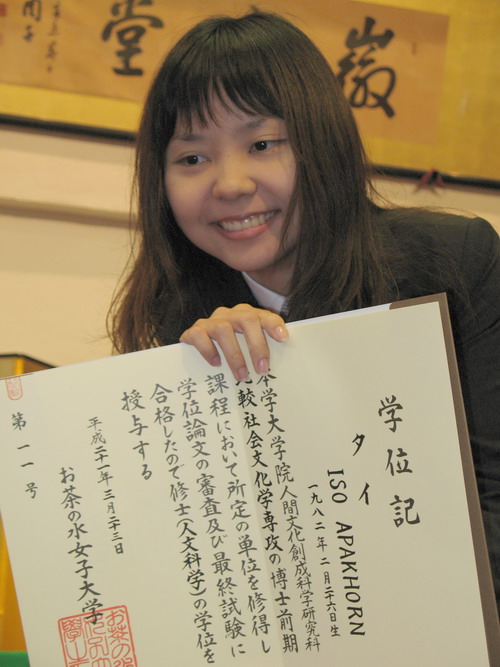 徽
堂
学位記
タイ
ISO APAKHORN
一九八二年二月二十六日生
本学大学院人間文化創成科学研究科
比較社会文化学専攻の博士前期
課程において所定の単位を修得し
学位論文の審査及び最終試験に
合格したので修士(人文科学)の学位を
授与する
平成二十一年三月二十三日
お茶の水女子大学
第一一号